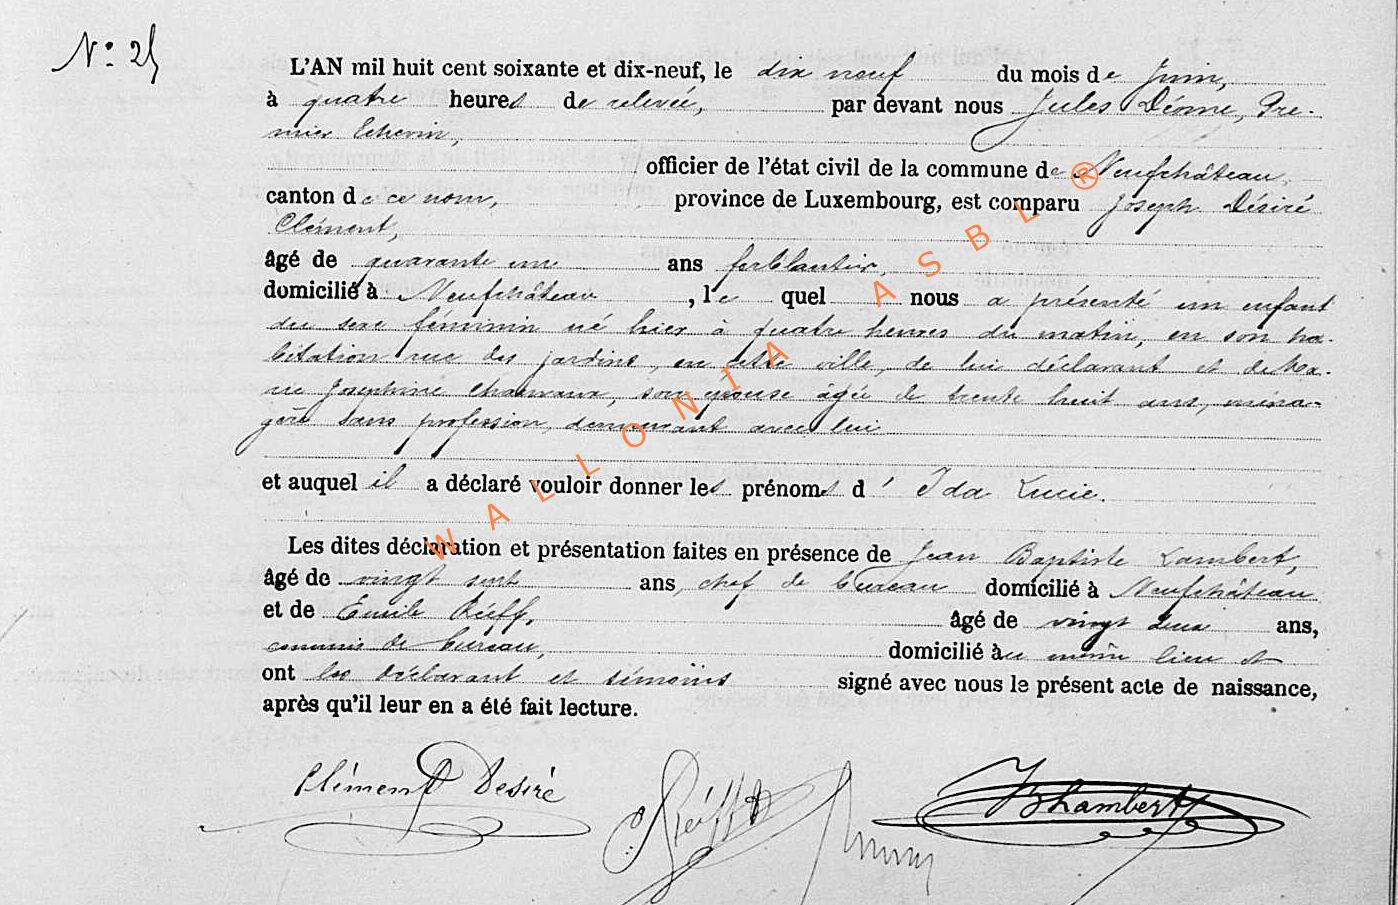 N° 25
L'AN mil huit cent soixante et dix-neuf, le dix neuf du mois de Juin,
à quatre heures de relevée, par devant nous Jules Déome, Pre-
mier Echevin,
officier de l'état civil de la commune de Neufchâteau,
canton de ce nom, province de Luxembourg, est comparu Joseph Désiré
Clément,
âgé de quarante un ans ferblantier,
domicilié à Neufchâteau, le quel nous a présenté un enfant
du sexe féminin né hier à quatre heures du matin, en son ha-
bitation rue des jardins, en cette ville, de lui déclarant et de Ma-
rie Josephine, son épouse âgée de trente huit ans, ména-
gère sans profession, demeurant avec lui
et auquel il a déclaré vouloir donner les prénoms d' Ida Lucie.
Les dites déclaration et présentation faites en présence de Jean Baptiste Lambert,
âgé de vingt sept ans, chef de bureau domicilié à Neufchâteau
et de Emile Rieff, âgé de vingt deux ans,
commis de bureau, domicilié au même lieu et
ont les déclarant et témoins signé avec nous le présent acte de naissance,
après qu'il leur en a été fait lecture.
Clément Desiré
WALLONIA ASBL ®